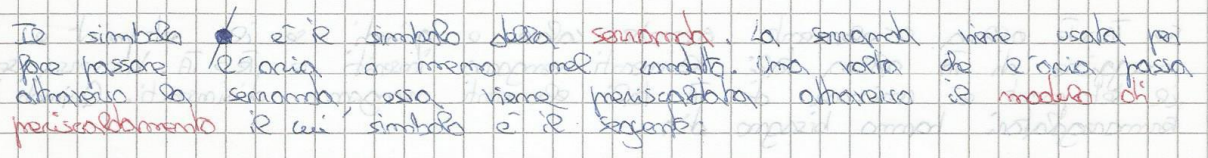 Il simbolo è il simbolo della serranda. La serranda viene usata per
fare passare l'aria o meno nel condotto. Una volta che l'aria passa
attraverso la serranda, essa viene preriscaldata attraverso il modulo di
preriscaldamento il cui simbolo è il seguente: